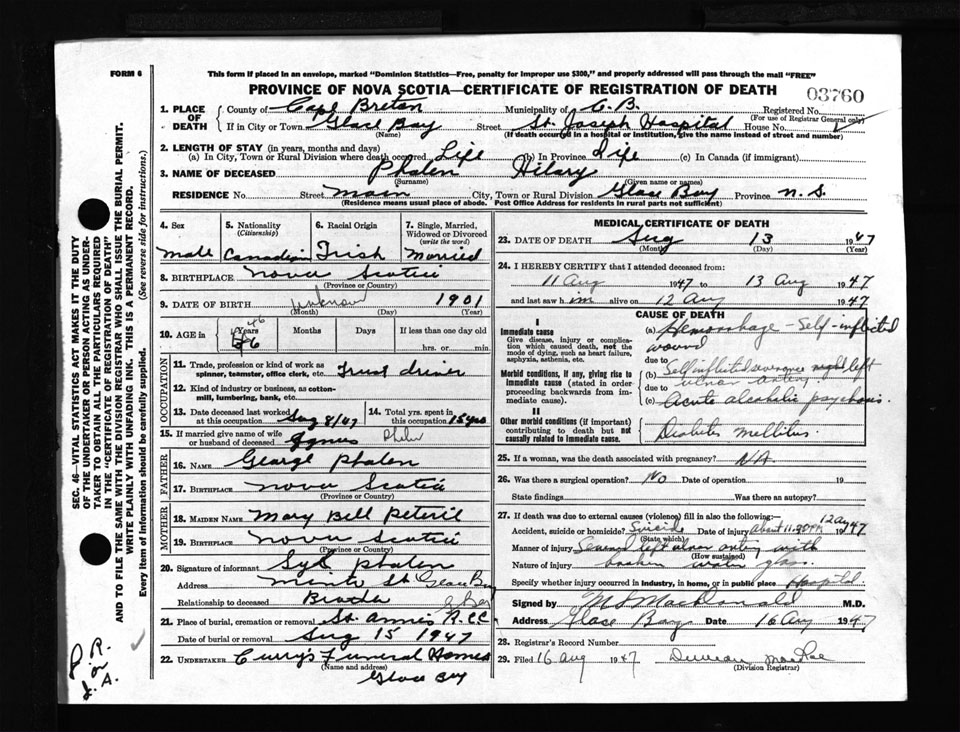 FORM 6
This form if placed in an envelope, marked "Dominion Statistics—Free, penalty for improper use $300," and properly addressed will pass through the mail "FREE"
PROVINCE OF NOVA SCOTIA—CERTIFICATE OF REGISTRATION OF DEATH
03760
1. PLACE OF DEATH
County of Cape Breton Municipality of C.B. Registered No.
(For use of Registrar General only)
If in City or Town Glace Bay Street St. Joseph Hospital House No.
(Name) (If death occurred in a hospital or institution, give the name instead of street and number)
2. LENGTH OF STAY (in years, months and days)
(a) In City, Town or Rural Division where death occurred Life (b) In Province Life (c) In Canada (if immigrant)
3. NAME OF DECEASED Phalen Hilary
(Surname) (Given name or names)
RESIDENCE No. Street Main City, Town or Rural Division Glace Bay Province N.S.
(Residence means usual place of abode. Post Office Address for residents in rural parts not sufficient)
4. Sex
Male
5. Nationality
(Citizenship)
Canadian
6. Racial Origin
Irish
7. Single, Married, Widowed or Divorced
(write the word)
Married
8. BIRTHPLACE Nova Scotia
(Province or Country)
9. DATE OF BIRTH unknown 1901
(Month) (Day) (Year)
10. AGE in
Years Months Days If less than one day old
46
hrs. or min.
OCCUPATION
11. Trade, profession or kind of work as spinner, teamster, office clerk, etc. Truck driver
12. Kind of industry or business, as cotton-mill, lumbering, bank, etc.
13. Date deceased last worked at this occupation Aug 8/47
14. Total yrs. spent in this occupation 15 yrs
15. If married give name of wife or husband of deceased Agnes Phalen
FATHER
16. NAME George Phalen
17. BIRTHPLACE Nova Scotia
(Province or Country)
MOTHER
18. MAIDEN NAME Mary Bell
19. BIRTHPLACE Nova Scotia
(Province or Country)
20. Signature of informant Phalen
Address St Glace Bay
Relationship to deceased Brother
21. Place of burial, cremation or removal St. Anns R.C.C. G Bay
Date of burial or removal Aug 15 1947
22. UNDERTAKER Curry's Funeral Homes
(Name and address)
Glace Bay
MEDICAL CERTIFICATE OF DEATH
23. DATE OF DEATH Aug 13 1947
(Month) (Day) (Year)
24. I HEREBY CERTIFY that I attended deceased from:
11 Aug 1947 to 13 Aug 1947
and last saw him alive on 12 Aug 1947
CAUSE OF DEATH
I
Immediate cause
Give disease, injury or complication which caused death, not the mode of dying, such as heart failure, asphyxia, asthenia, etc.
(a) Hemorrhage - Self-inflicted wound
due to
Morbid conditions, if any, giving rise to immediate cause (stated in order proceeding backwards from immediate cause).
(b) Self inflicted severance left ulnar artery
due to
(c) Acute alcoholic psychosis.
II
Other morbid conditions (if important) contributing to death but not causally related to immediate cause.
Diabetes mellitus.
25. If a woman, was the death associated with pregnancy? NA.
26. Was there a surgical operation? No Date of operation 19
State findings Was there an autopsy?
27. If death was due to external causes (violence) fill in also the following:—
Accident, suicide or homicide? Suicide Date of injury about 11.30 PM 12 Aug 1947
(State which)
Manner of injury Severed left ulnar artery with
(How sustained)
Nature of injury broken water glass.
Specify whether injury occurred in industry, in home, or in public place Hospital
Signed by MacDonald M.D.
Address Glace Bay Date 16 Aug 1947
28. Registrar's Record Number
29. Filed 16 Aug 1947 Duncan MacRae
(Division Registrar)
SEC. 46—VITAL STATISTICS ACT MAKES IT THE DUTY OF THE UNDERTAKER OR PERSON ACTING AS UNDERTAKER TO OBTAIN ALL THE PARTICULARS REQUIRED IN THE "CERTIFICATE OF REGISTRATION OF DEATH" AND TO FILE THE SAME WITH THE DIVISION REGISTRAR WHO SHALL ISSUE THE BURIAL PERMIT.
WRITE PLAINLY WITH UNFADING INK. THIS IS A PERMANENT RECORD.
Every item of information should be carefully supplied. (See reverse side for instructions.)